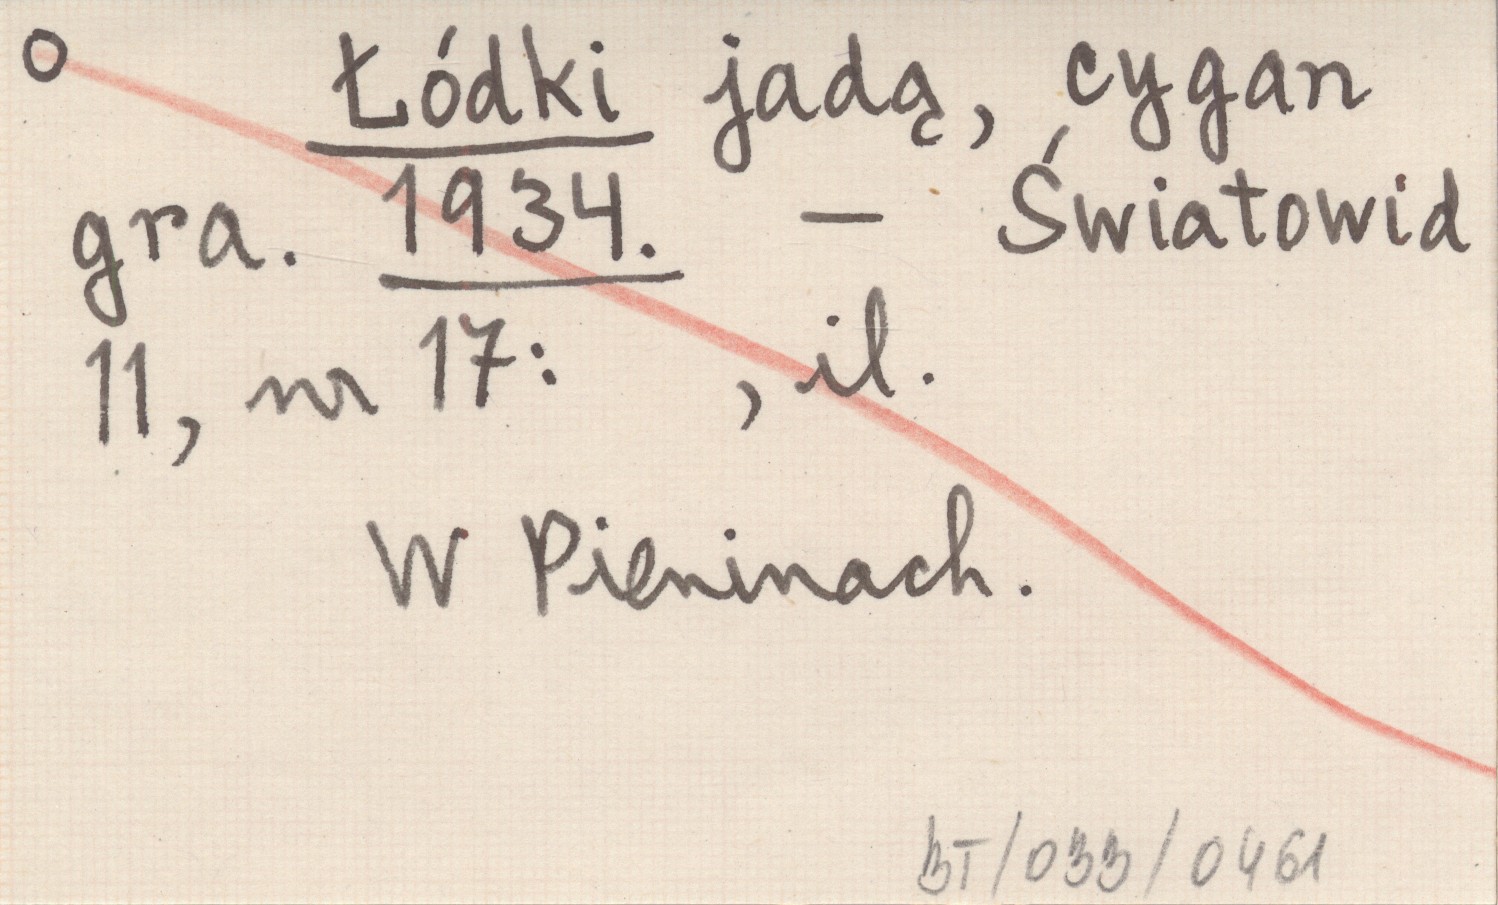 O Łódki jadą, cygan
gra. 1934. – Światowid
11, nr 17: , il.
W Pieninach.
BT/033/0461